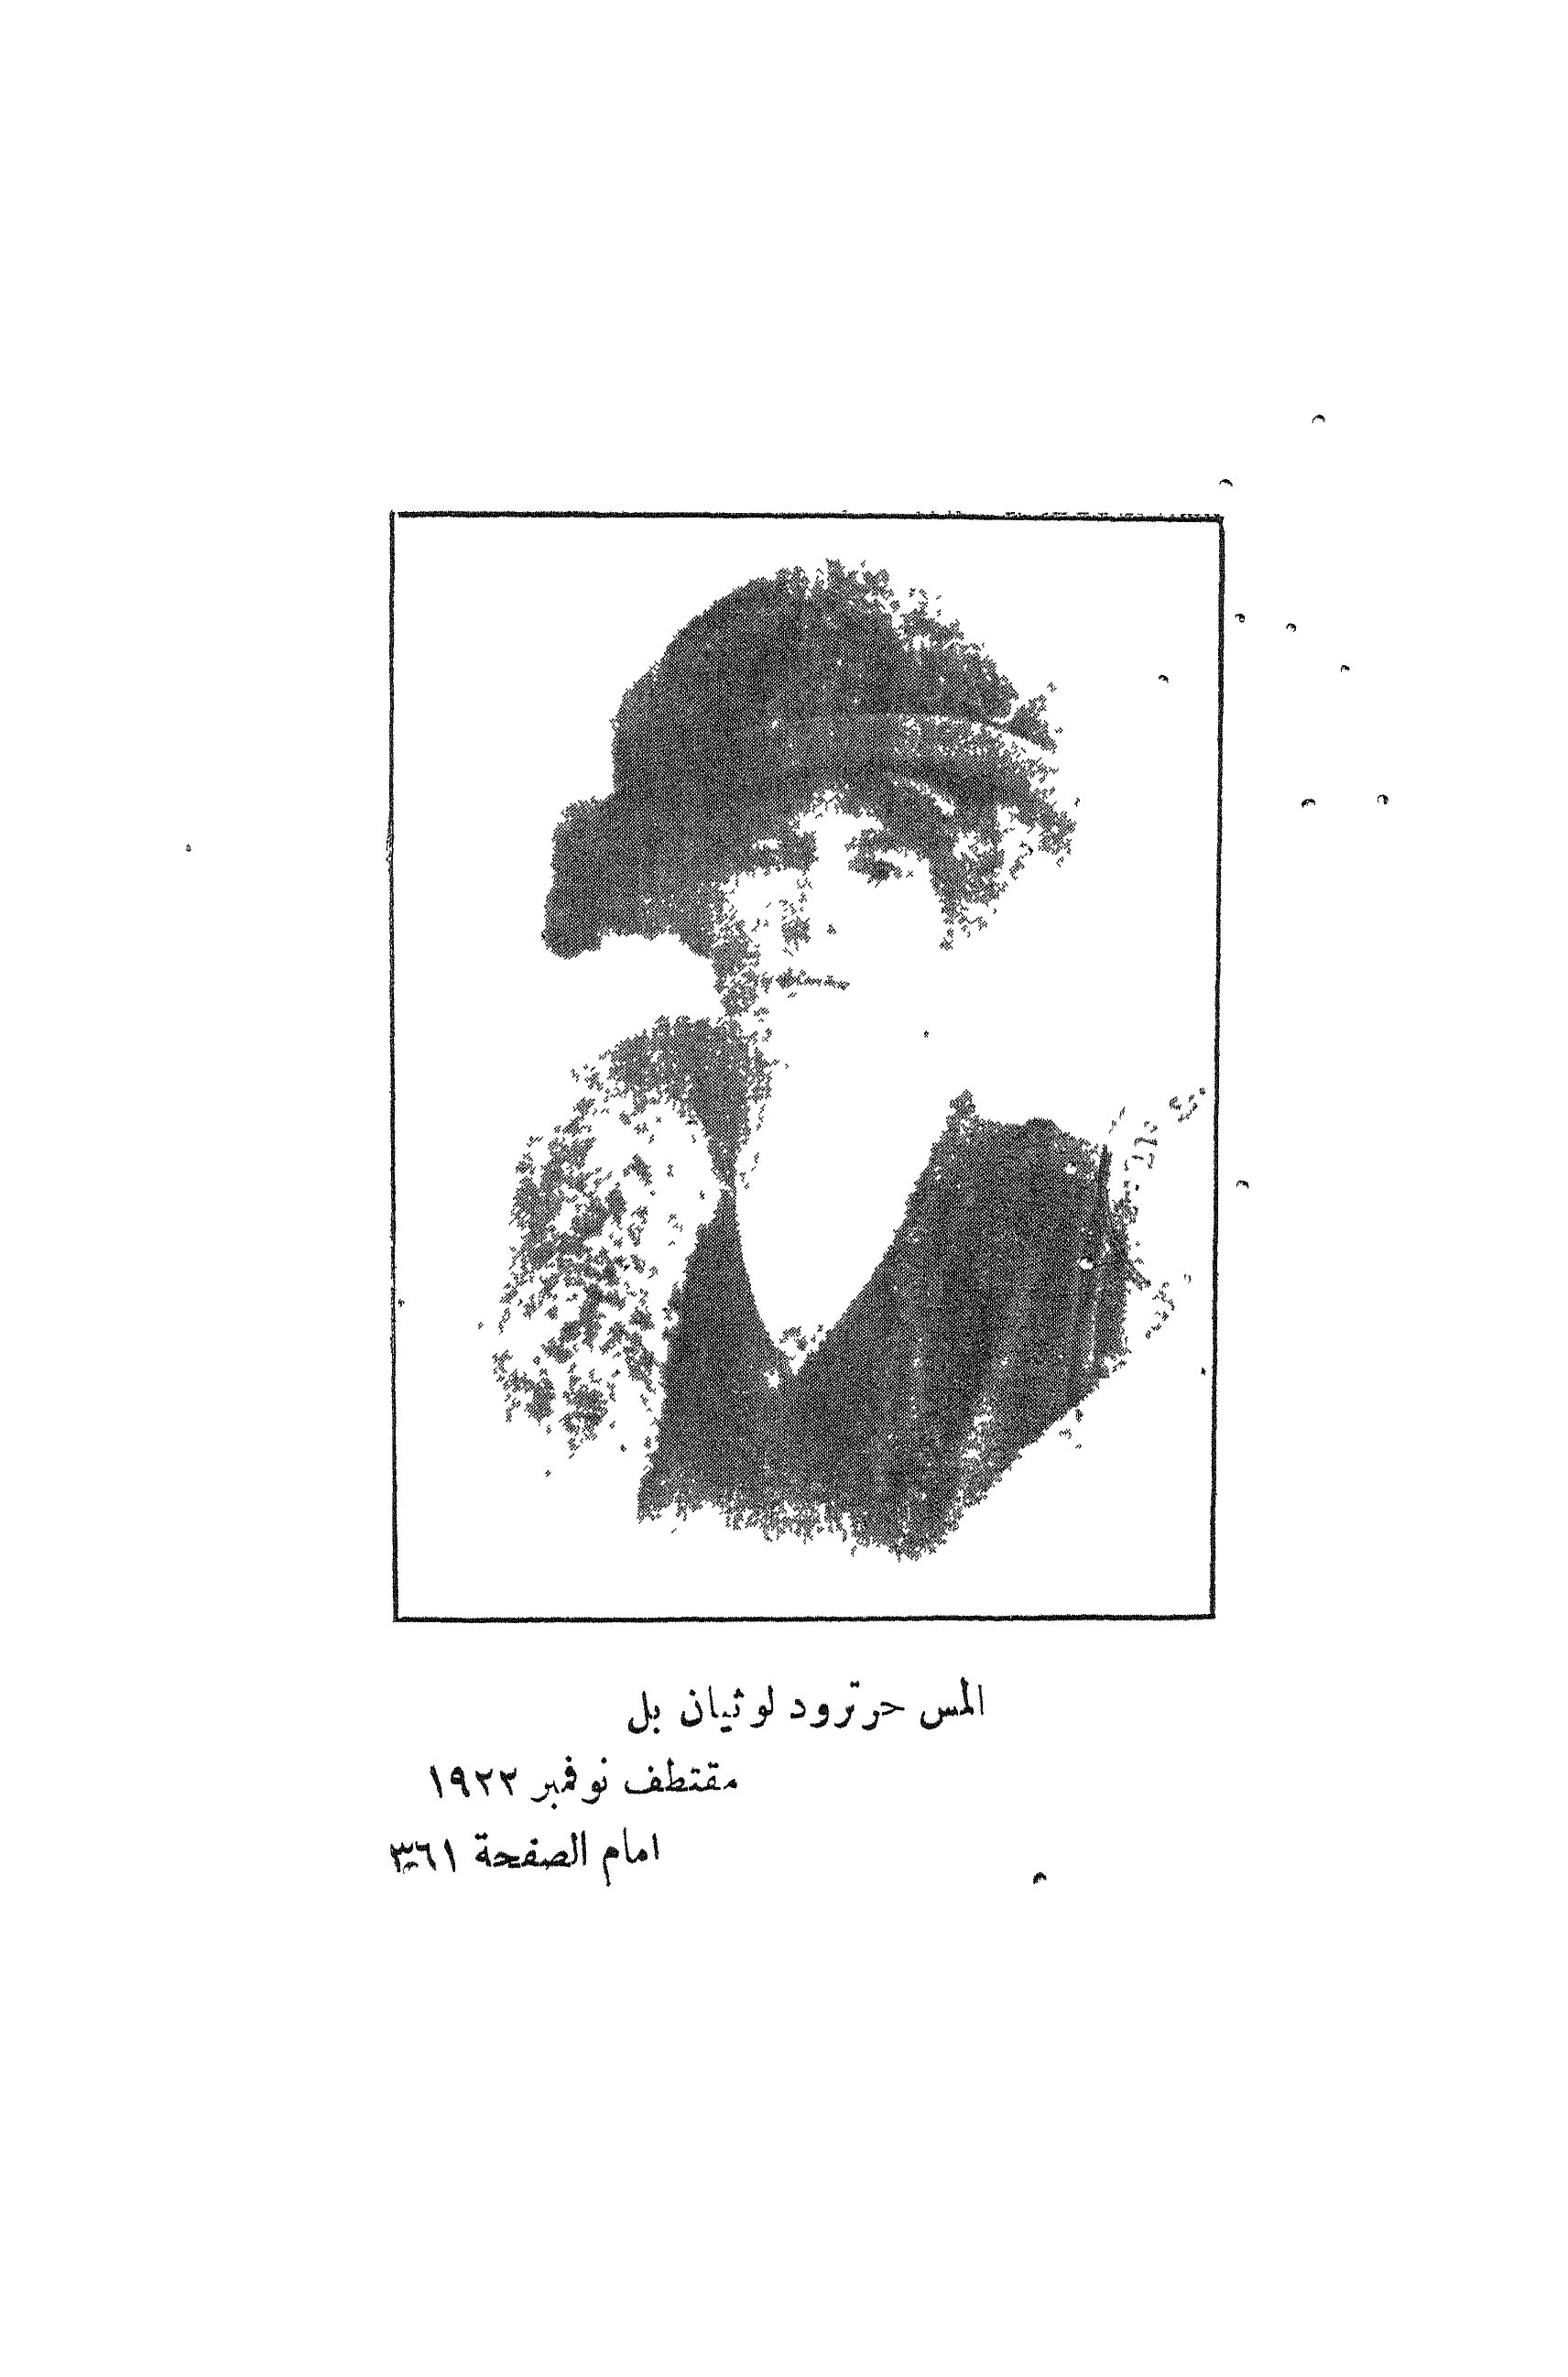 المس حرترود لوثيان بل
مقتطف نوفمبر ١٩٢٢
امام الصفحة ٣٦١